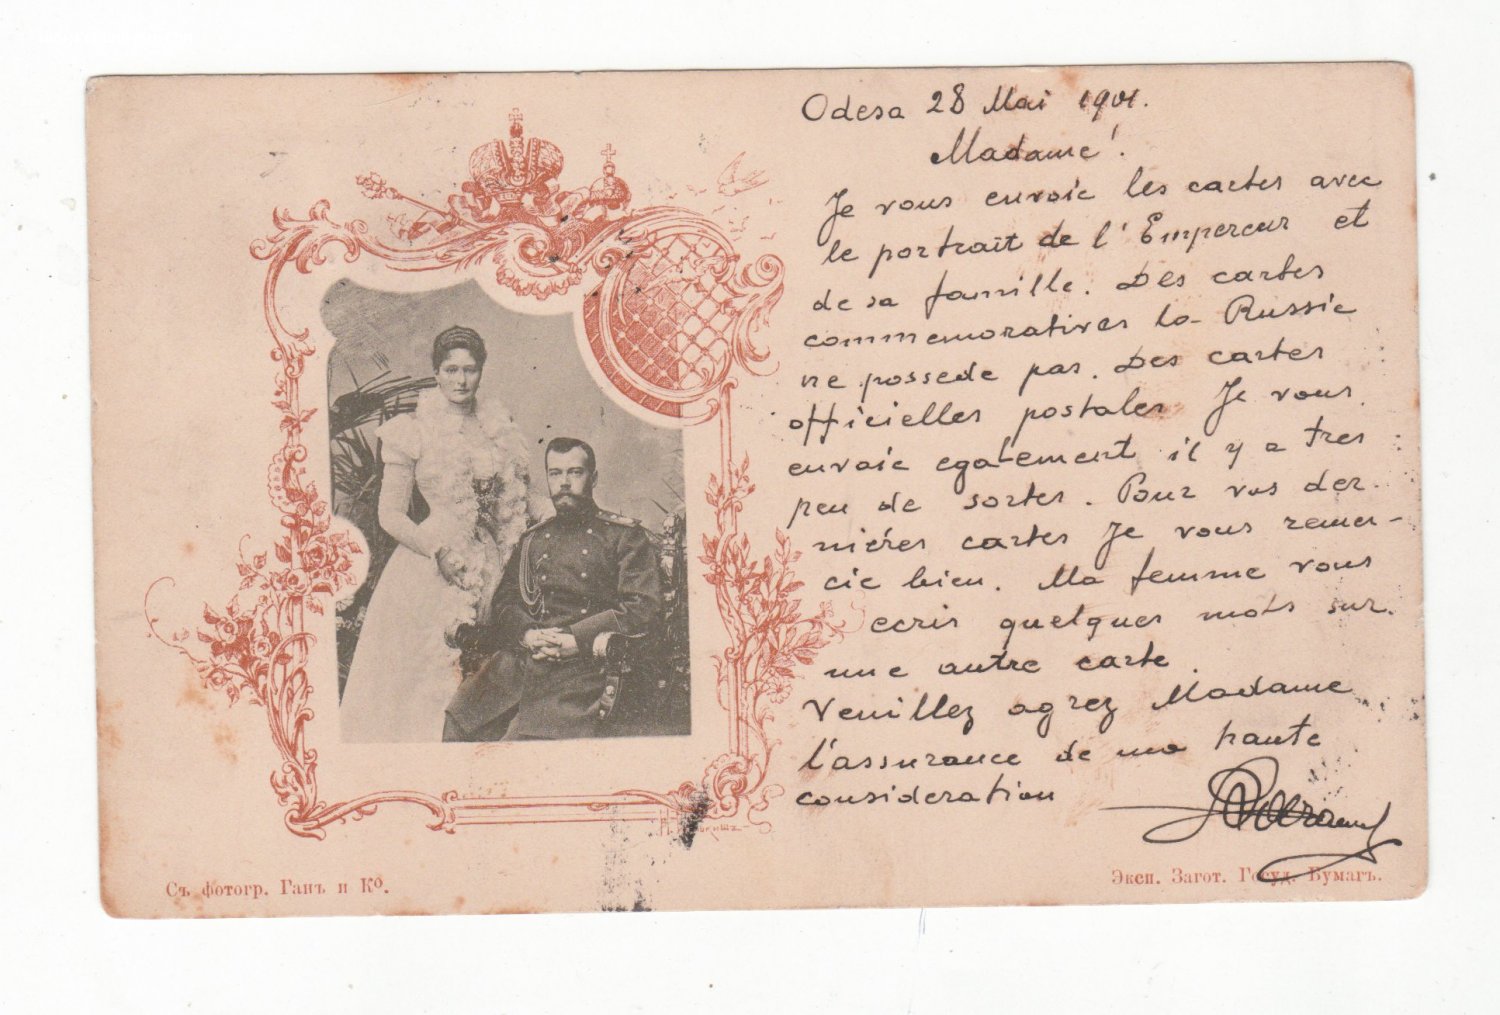 Odesa 28 Mai 1901.
Madame!
Je vous envoie les cartes avec
le portrait de l'Empereur et
de sa famille. Des cartes
commemoratives la Russie
ne possede pas. Des cartes
officielles postales Je vous
envoie egalement il y a tres
peu de sortes. Pour vos der-
niéres cartes Je vous remer-
cie bien. Ma femme vous
ecris quelques mots sur
une autre carte.
Veuillez agrez Madame
l'assurance de ma haute
consideration
Съ фотогр. Ганъ и Ко.
Эксп. Загот. Госуд. Бумагъ.